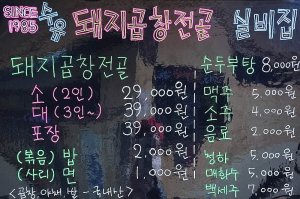 SINCE 1985 수유 돼지곱창전골 실비집
돼지곱창전골
소 (2인) 29,000원
대 (3인~) 39,000원
포장 39,000원
(볶음) 밥 2,000원
(사리) 면 1,000원
<곱창, 야채, 쌀 - 국내산>
순두부탕 8,000원
맥주 5,000원
소주 4,000원
음료 2,000원
청하 5,000원
매화수 5,000원
백세주 7,000원